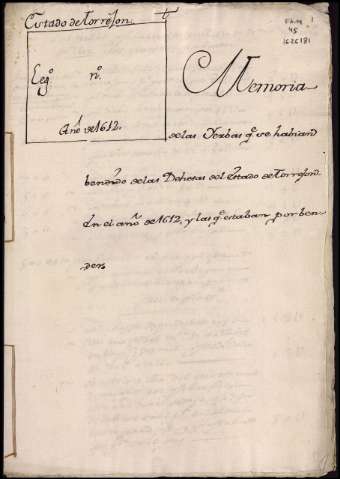 Estado de Torrejon. t
Leg.º n.º
Año de 1612.
45
Memoria
de las Yerbas q.e se habian
bendido de las Dehesas del Estado de Torrejon
En el año de 1612, y las q.e estaban por ben
der